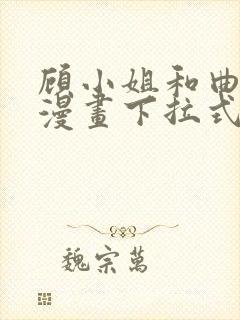 顾小姐和曲
漫畫下拉式
魏宗萬